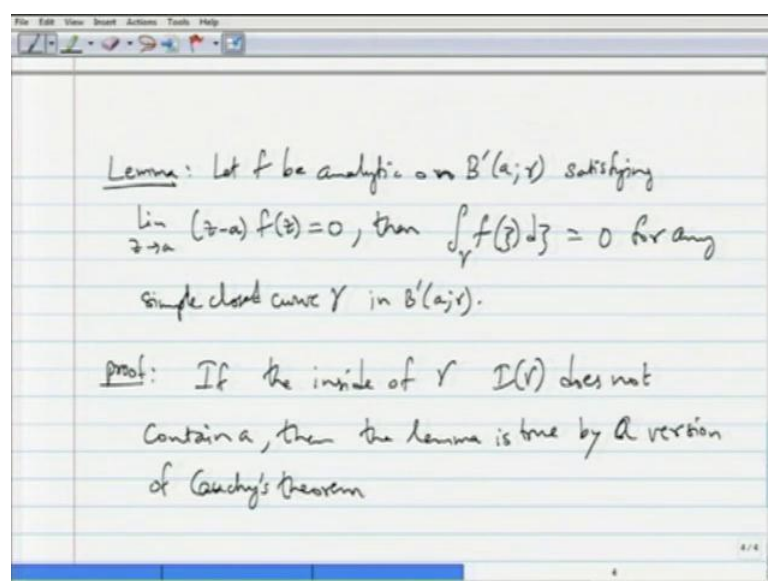 File Edit View Insert Actions Tools Help
Lemma: Let f be analytic on B'(a;r) satisfying
lim z→a (z-a) f(z) = 0, then ∫γ f(ʒ) dʒ = 0 for any
simple closed curve γ in B'(a;r).
proof: If the inside of γ I(γ) does not
contain a, then the lemma is true by a version
of Cauchy's theorem
4/4
4